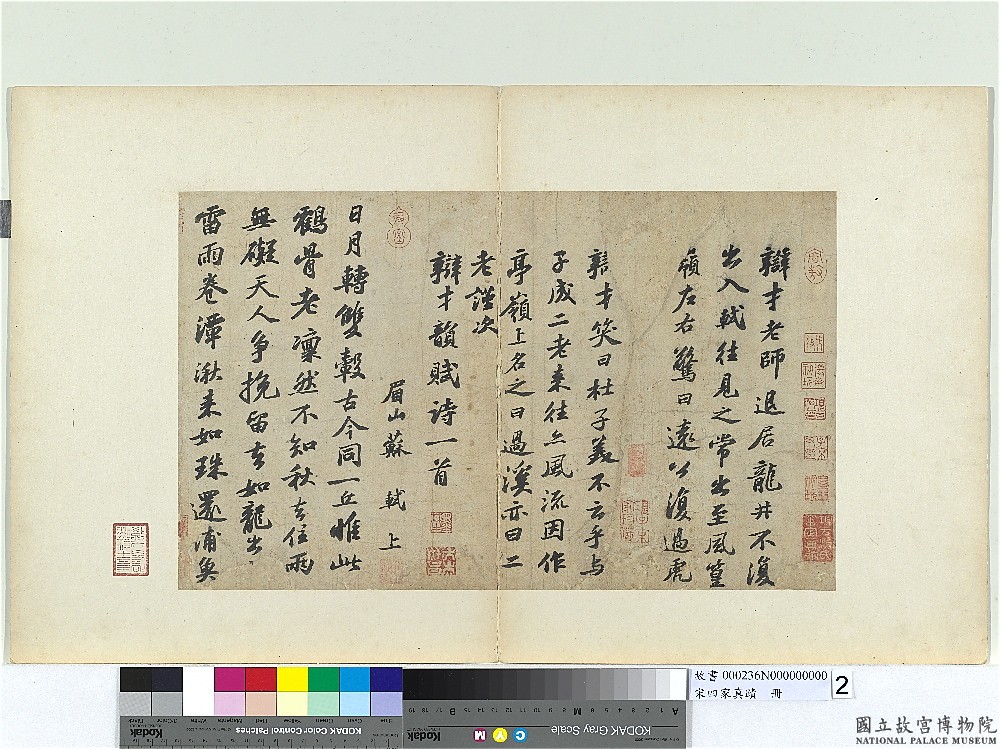 辯才老師退居龍井不復
出入軾往見之常出至風篁
嶺左右驚曰遠公復過虎
辯才笑曰杜子美不云乎與
子成二老來往亦風流因作
亭嶺上名之曰過溪亦曰二
老謹次
辯才韻賦诗一首
眉山蘇軾上
日月轉雙轂古今同一丘惟此
鶴骨老凜然不知秋去住兩
無礙天人争挽留去如龍出
雷雨卷潭湫来如珠還浦魚
故書 000236N000000000
宋四家真蹟 冊
2
Kodak
KODAK Color Control Patches
Kodak
KODAK Gray Scale
C Y M
國立故宮博物院
NATIONAL PALACE MUSEUM